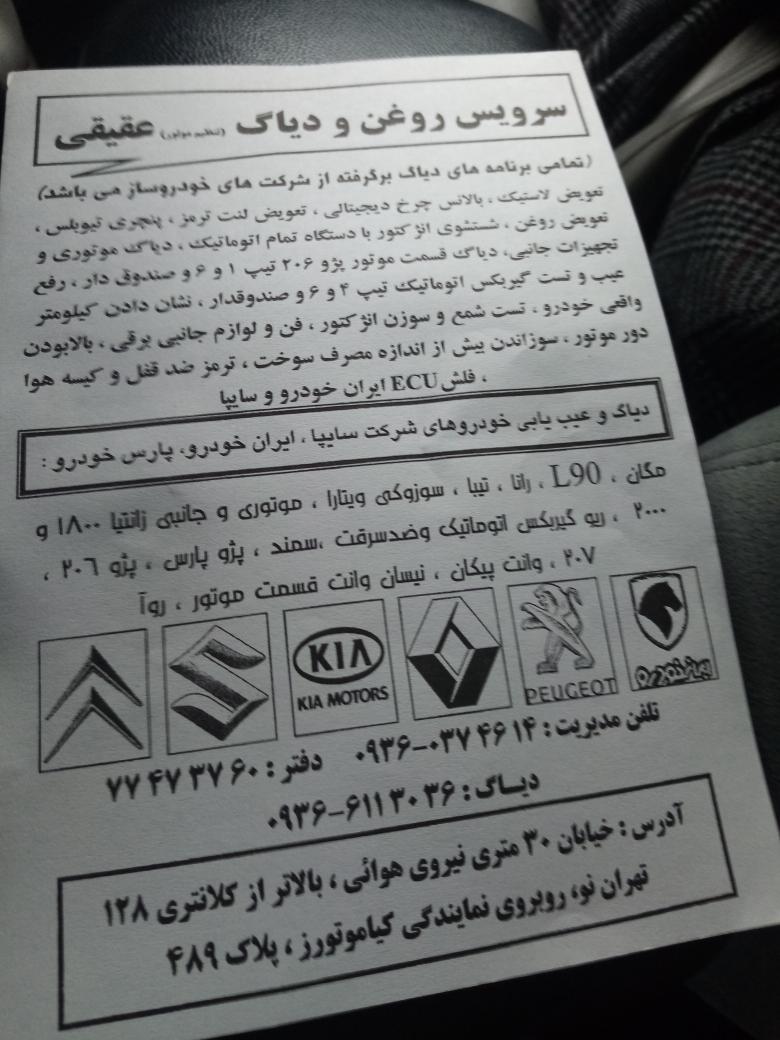 سرویس روغن و دیاگ (تنظیم موتور) عقیقی
(تمامی برنامه های دیاگ برگرفته از شرکت های خودروساز می باشد)
تعویض لاستیک ، بالانس چرخ دیجیتالی ، تعویض لنت ترمز ، پنچری تیوبلس ،
تعویض روغن ، شستشوی انژکتور با دستگاه تمام اتوماتیک ، دیاگ موتوری و
تجهیزات جانبی، دیاگ قسمت موتور پژو ۲۰۶ تیپ ۱ و ۶ و صندوق دار ، رفع
عیب و تست گیربکس اتوماتیک تیپ ۴ و ۶ و صندوقدار ، نشان دادن کیلومتر
واقعی خودرو ، تست شمع و سوزن انژکتور ، فن و لوازم جانبی برقی ، بالابودن
دور موتور ، سوزاندن بیش از اندازه مصرف سوخت ، ترمز ضد قفل و کیسه هوا
، فلش ECU ایران خودرو و سایپا
دیاگ و عیب یابی خودروهای شرکت سایپا ، ایران خودرو، پارس خودرو :
مگان ، L90 ، رانا ، تیبا ، سوزوکی ویتارا ، موتوری و جانبی زانتیا ۱۸۰۰ و
۲۰۰۰ ، ریو گیربکس اتوماتیک وضدسرقت ،سمند ، پژو پارس ، پژو ۲۰۶ ،
۲۰۷ ، وانت پیکان ، نیسان وانت قسمت موتور ، روآ
ایران خودرو
PEUGEOT
KIA
KIA MOTORS
تلفن مدیریت : ۰۹۳۶-۰۳۷۴۶۱۴ دفتر : ۷۷۴۷۳۷۶۰
دیاگ : ۰۹۳۶-۶۱۱۳۰۳۶
آدرس : خیابان ۳۰ متری نیروی هوائی ، بالاتر از کلانتری ۱۲۸
تهران نو، روبروی نمایندگی کیاموتورز ، پلاک ۴۸۹